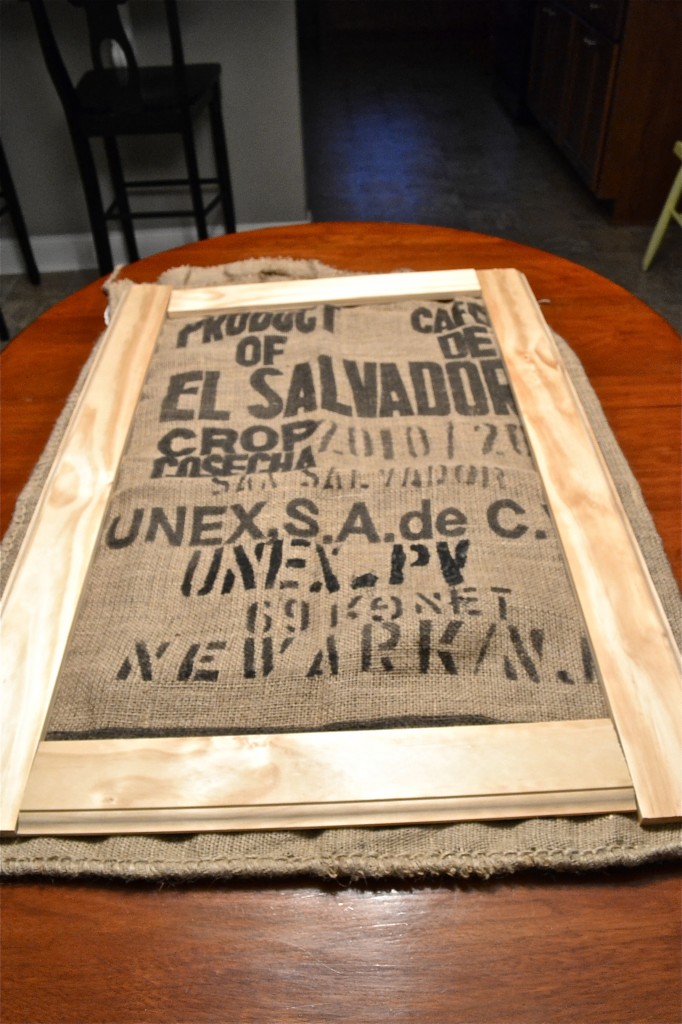 PRODUCT CAFE
OF DE
EL SALVADOR
CROP 2010/20
COSECHA
SAN SALVADOR
UNEX.S.A.de C.
UNEX-PV
69 K9 NET
NEWARK/N.J